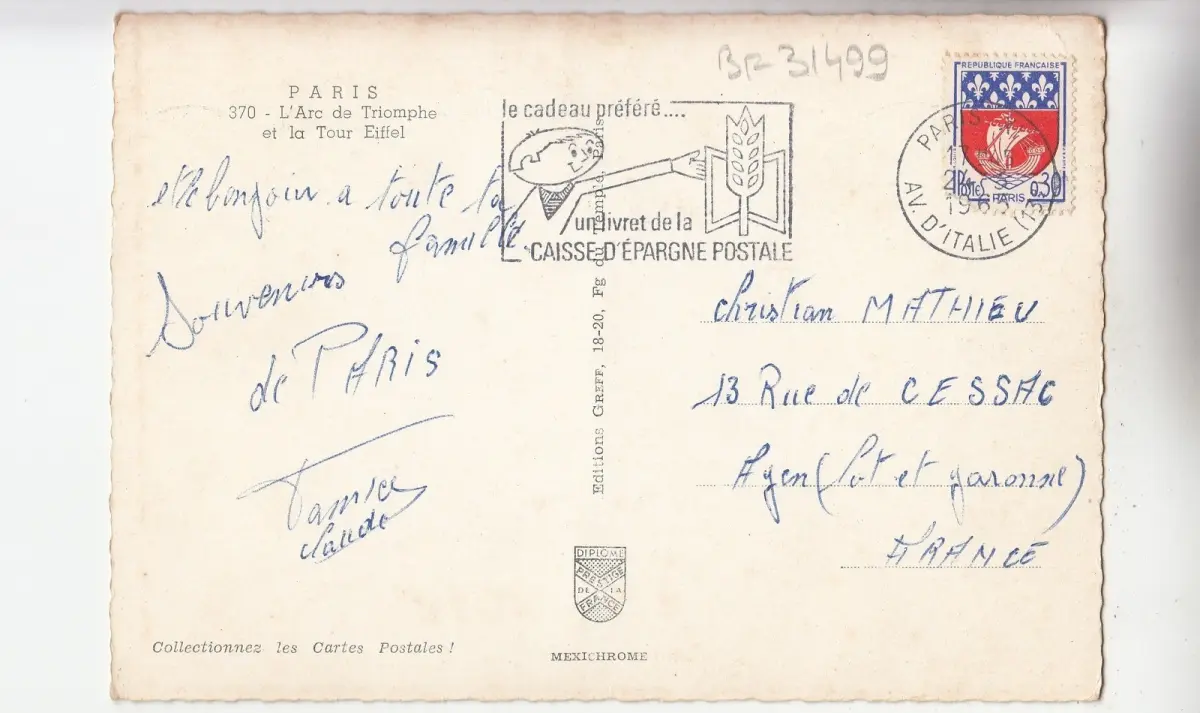 BF 31499
PARIS
370 - L'Arc de Triomphe
et la Tour Eiffel
et le bonjour a toute ta
famille.
Souvenirs
de PARIS
Claude
Collectionnez les Cartes Postales !
le cadeau préféré....
un livret de la
CAISSE D'ÉPARGNE POSTALE
Editions GREFF, 18-20, Fg du Temple, Paris
DIPLOME
PRESTIGE
DE LA
FRANCE
MEXICHROME
REPUBLIQUE FRANÇAISE
POSTES
0,30
PARIS
PARIS
17 H
1965
AV. D'ITALIE (13)
Christian MATHIEU
13 Rue de CESSAC
Agen (Lot et garonne)
FRANCE